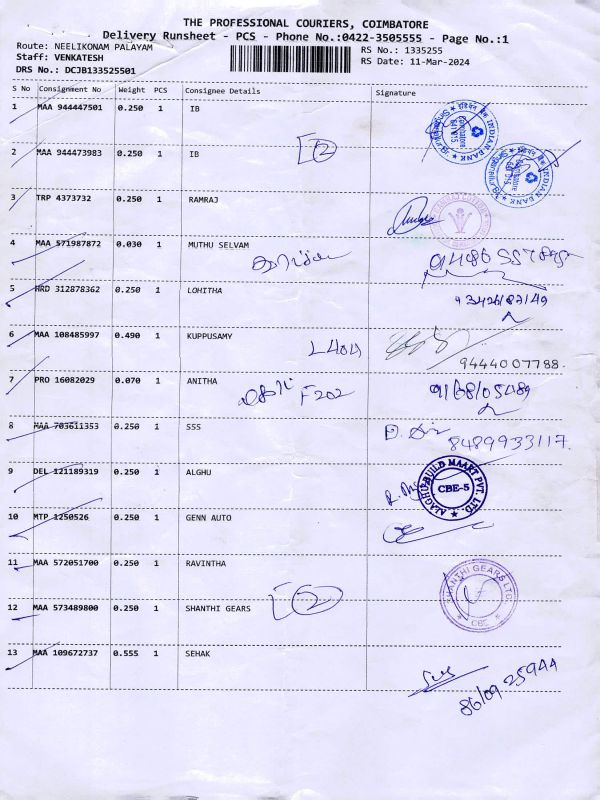 THE PROFESSIONAL COURIERS, COIMBATORE
Delivery Runsheet - PCS - Phone No.:0422-3505555 - Page No.:1
Route: NEELIKONAM PALAYAM
RS No.: 1335255
Staff: VENKATESH
RS Date: 11-Mar-2024
DRS No.: DCJB133525501
S No Consignment No Weight PCS Consignee Details Signature
1 MAA 944447501 0.250 1 IB
INDIAN BANK
2 MAA 944473983 0.250 1 IB
2
INDIAN BANK
3 TRP 4373732 0.250 1 RAMRAJ
4 MAA 571987872 0.030 1 MUTHU SELVAM
5 HRD 312878362 0.250 1 LOHITHA
6 MAA 108485997 0.490 1 KUPPUSAMY
L404
9444007788.
7 PRO 16082029 0.070 1 ANITHA
F202
8 MAA 703611353 0.250 1 SSS
8489933117.
9 DEL 121189319 0.250 1 ALGHU
ALAGHU BUILD MAART PVT. LTD.
CBE-5
10 MTP 1250526 0.250 1 GENN AUTO
11 MAA 572051700 0.250 1 RAVINTHA
12 MAA 573489800 0.250 1 SHANTHI GEARS
2
SHANTHI GEARS LTD.
CBE
13 MAA 109672737 0.555 1 SEHAK
86109 25944